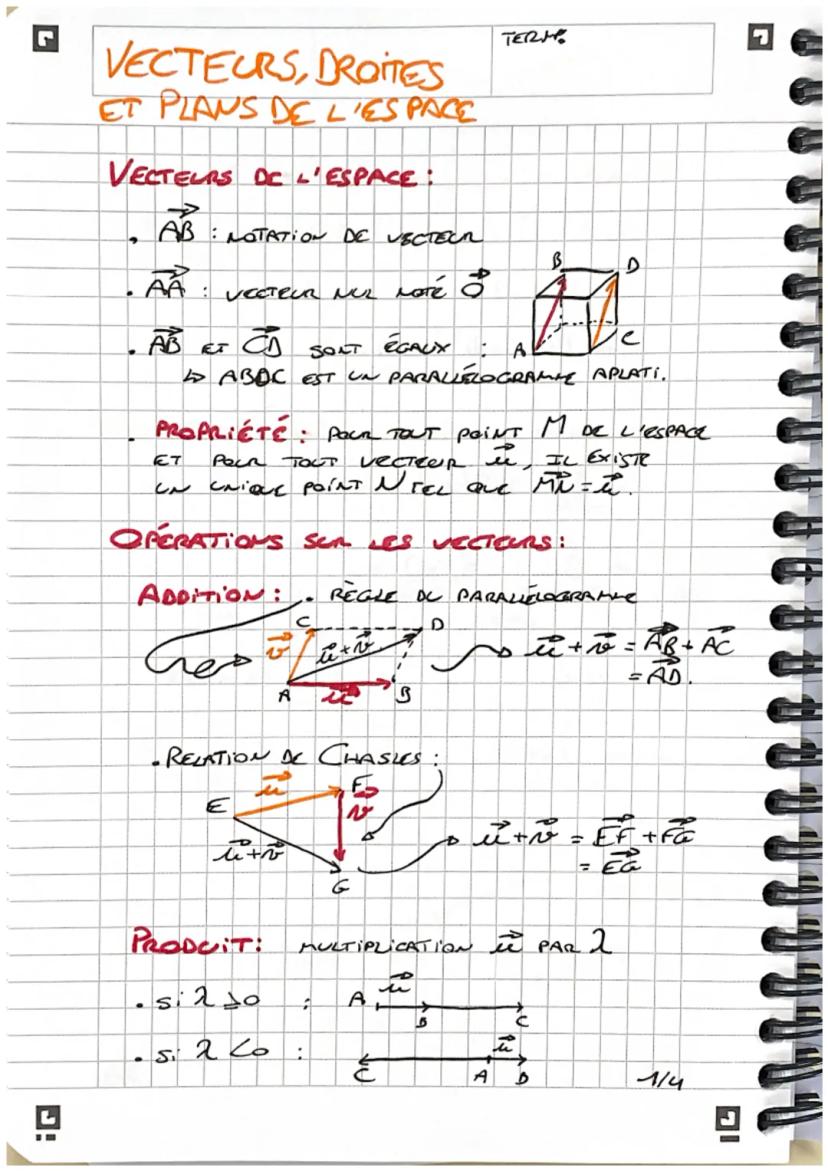 VECTEURS, DROITES
TERM.
ET PLANS DE L'ESPACE
VECTEURS DE L'ESPACE :
• AB⃗ : NOTATION DE VECTEUR
• AA⃗ : VECTEUR NUL NOTÉ 0⃗
• AB⃗ ET CD⃗ SONT ÉGAUX :
B D
A C
↳ ABDC EST UN PARALLÉLOGRAMME APLATI.
• PROPRIÉTÉ : POUR TOUT POINT M DE L'ESPACE
ET POUR TOUT VECTEUR u⃗, IL EXISTE
UN UNIQUE POINT N TEL QUE MN⃗ = u⃗.
OPÉRATIONS SUR LES VECTEURS :
ADDITION : • RÈGLE DU PARALLÉLOGRAMME
C D
v⃗ u⃗+v⃗
A u⃗ B
u⃗+v⃗ = AB⃗ + AC⃗
= AD⃗.
• RELATION DE CHASLES :
E u⃗ F
v⃗
u⃗+v⃗
G
u⃗+v⃗ = EF⃗ + FG⃗
= EG⃗
PRODUIT : MULTIPLICATION u⃗ PAR λ
• si λ ≥ 0 : A u⃗ B C
• si λ < 0 : C A u⃗ B
1/4